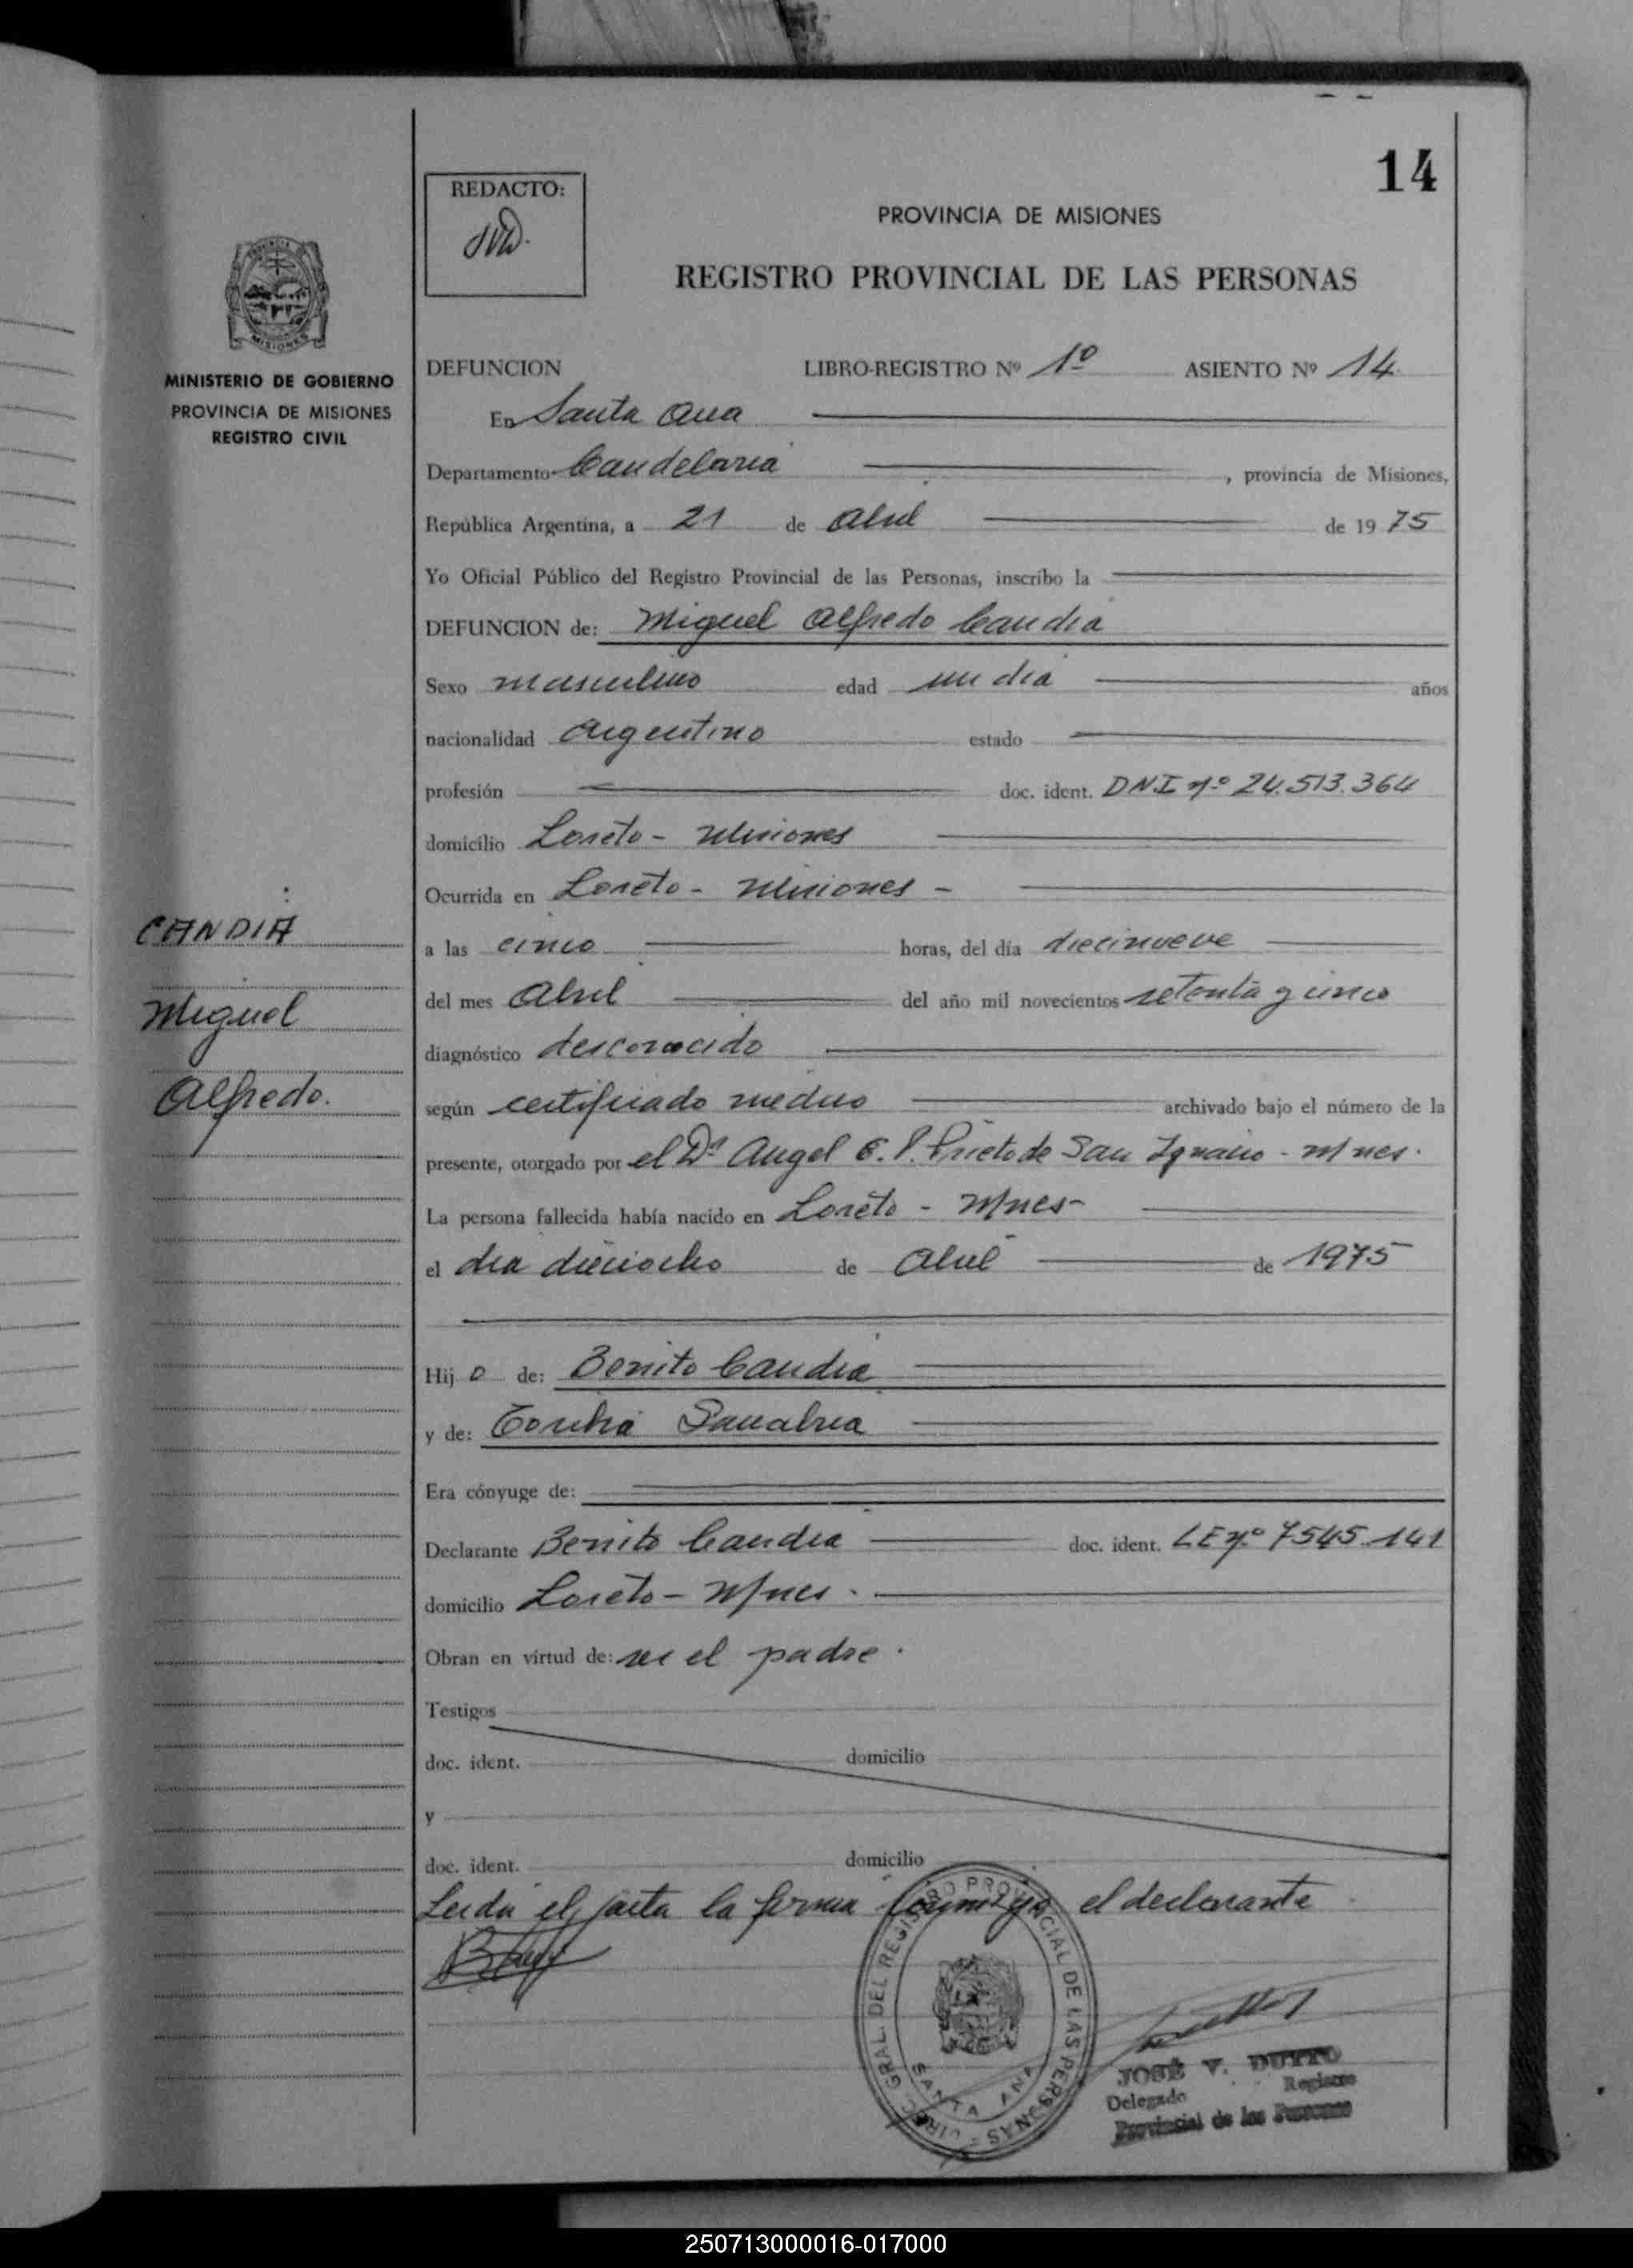 14
REDACTO:
PROVINCIA DE MISIONES
REGISTRO PROVINCIAL DE LAS PERSONAS
MINISTERIO DE GOBIERNO
PROVINCIA DE MISIONES
REGISTRO CIVIL
DEFUNCION LIBRO-REGISTRO Nº 1º ASIENTO Nº 14
En Santa Ana
Departamento Candelaria, provincia de Misiones,
República Argentina, a 21 de Abril de 1975
Yo Oficial Público del Registro Provincial de las Personas, inscribo la
DEFUNCION de: Miguel Alfredo Candia
Sexo masculino edad un dia años
nacionalidad Argentino estado
profesión doc. ident. DNI Nº 24.513.364
domicilio Loreto - Misiones
Ocurrida en Loreto - Misiones -
CANDIA
Miguel
Alfredo.
a las cinco horas, del día diecinueve
del mes Abril del año mil novecientos setenta y cinco
diagnóstico desconocido
según certificado medico archivado bajo el número de la
presente, otorgado por el Dr Angel E. P. Prieto de San Ignacio - Mnes.
La persona fallecida había nacido en Loreto - Mnes-
el dia dieciocho de Abril de 1975
Hijo de: Benito Candia
y de: Sanabria
Era cónyuge de:
Declarante Benito Candia doc. ident. LE Nº 7545.141
domicilio Loreto - Mnes.
Obran en virtud de: ser el padre.
Testigos
doc. ident. domicilio
y
doc. ident. domicilio
Leida el acta la firma conmigo el declarante
DIREC. GRAL. DEL REGISTRO PROVINCIAL DE LAS PERSONAS
SANTA ANA
JOSÉ V. DUTTO
Delegado Registro
Provincial de las Personas
250713000016-017000